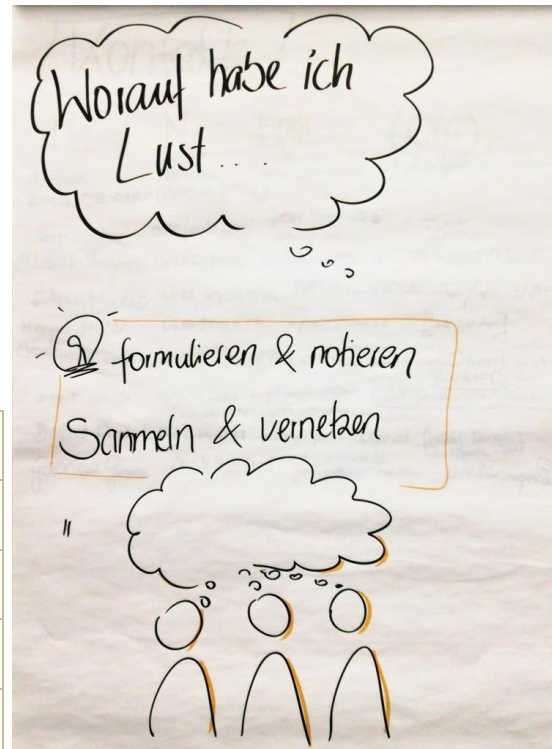 Worauf habe ich
Lust...
formulieren & notieren
Sammeln & vernetzen